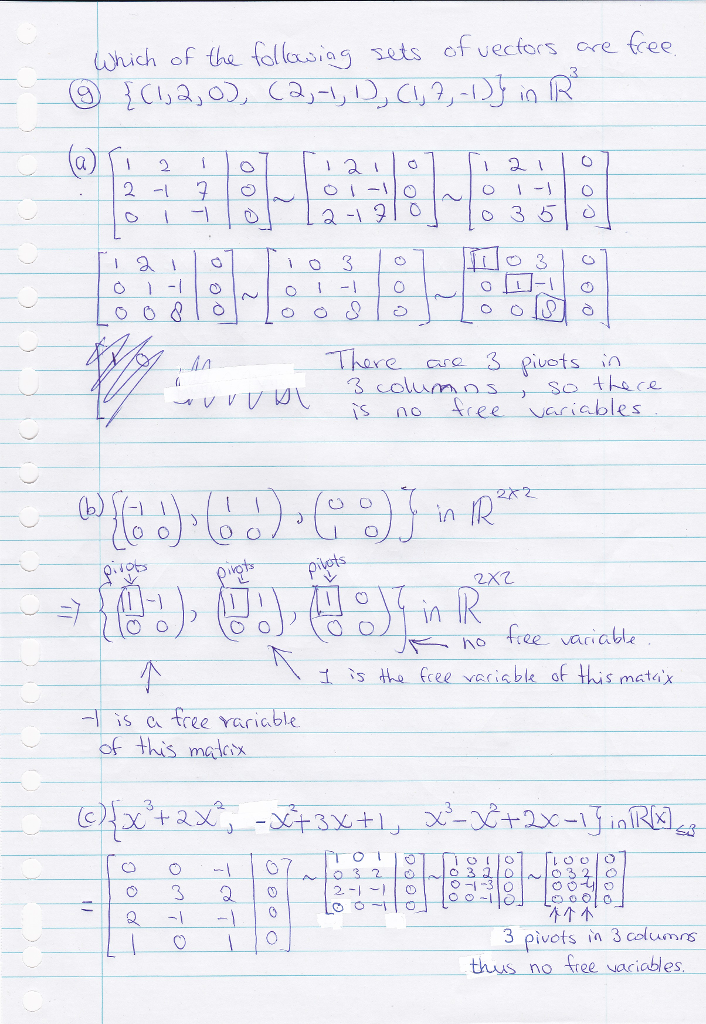 Which of the following sets of vectors are free.
(9) {(1,2,0), (2,-1,1), (1,7,-1)} in ℝ³
(a) [1 2 1 | 0; 2 -1 7 | 0; 0 1 -1 | 0] ~ [1 2 1 | 0; 0 1 -1 | 0; 2 -1 7 | 0] ~ [1 2 1 | 0; 0 1 -1 | 0; 0 3 5 | 0]
[1 2 1 | 0; 0 1 -1 | 0; 0 0 8 | 0] ~ [1 0 3 | 0; 0 1 -1 | 0; 0 0 8 | 0] ~ [1 0 3 | 0; 0 1 -1 | 0; 0 0 8 | 0]
There are 3 pivots in
3 columns, so there
is no free variables.
(b) {(-1 1; 0 0), (1 1; 0 0), (0 0; 1 0)} in ℝ²ˣ²
pivots pivots pivots
⇒ {(1 -1; 0 0), (1 1; 0 0), (1 0; 0 0)} in ℝ²ˣ²
no free variable.
1 is the free variable of this matrix
-1 is a free variable
of this matrix
(c) {x³+2x², -x²+3x+1, x³-x²+2x-1} in ℝ[x]≤3
= [0 0 -1 | 0; 0 3 2 | 0; 2 -1 -1 | 0; 1 0 1 | 0] ~ [1 0 1 | 0; 0 3 2 | 0; 2 -1 -1 | 0; 0 0 -1 | 0] ~ [1 0 1 | 0; 0 3 2 | 0; 0 -1 -3 | 0; 0 0 -1 | 0] ~ [1 0 0 | 0; 0 3 2 | 0; 0 0 -4 | 0; 0 0 0 | 0]
3 pivots in 3 columns
thus no free variables.